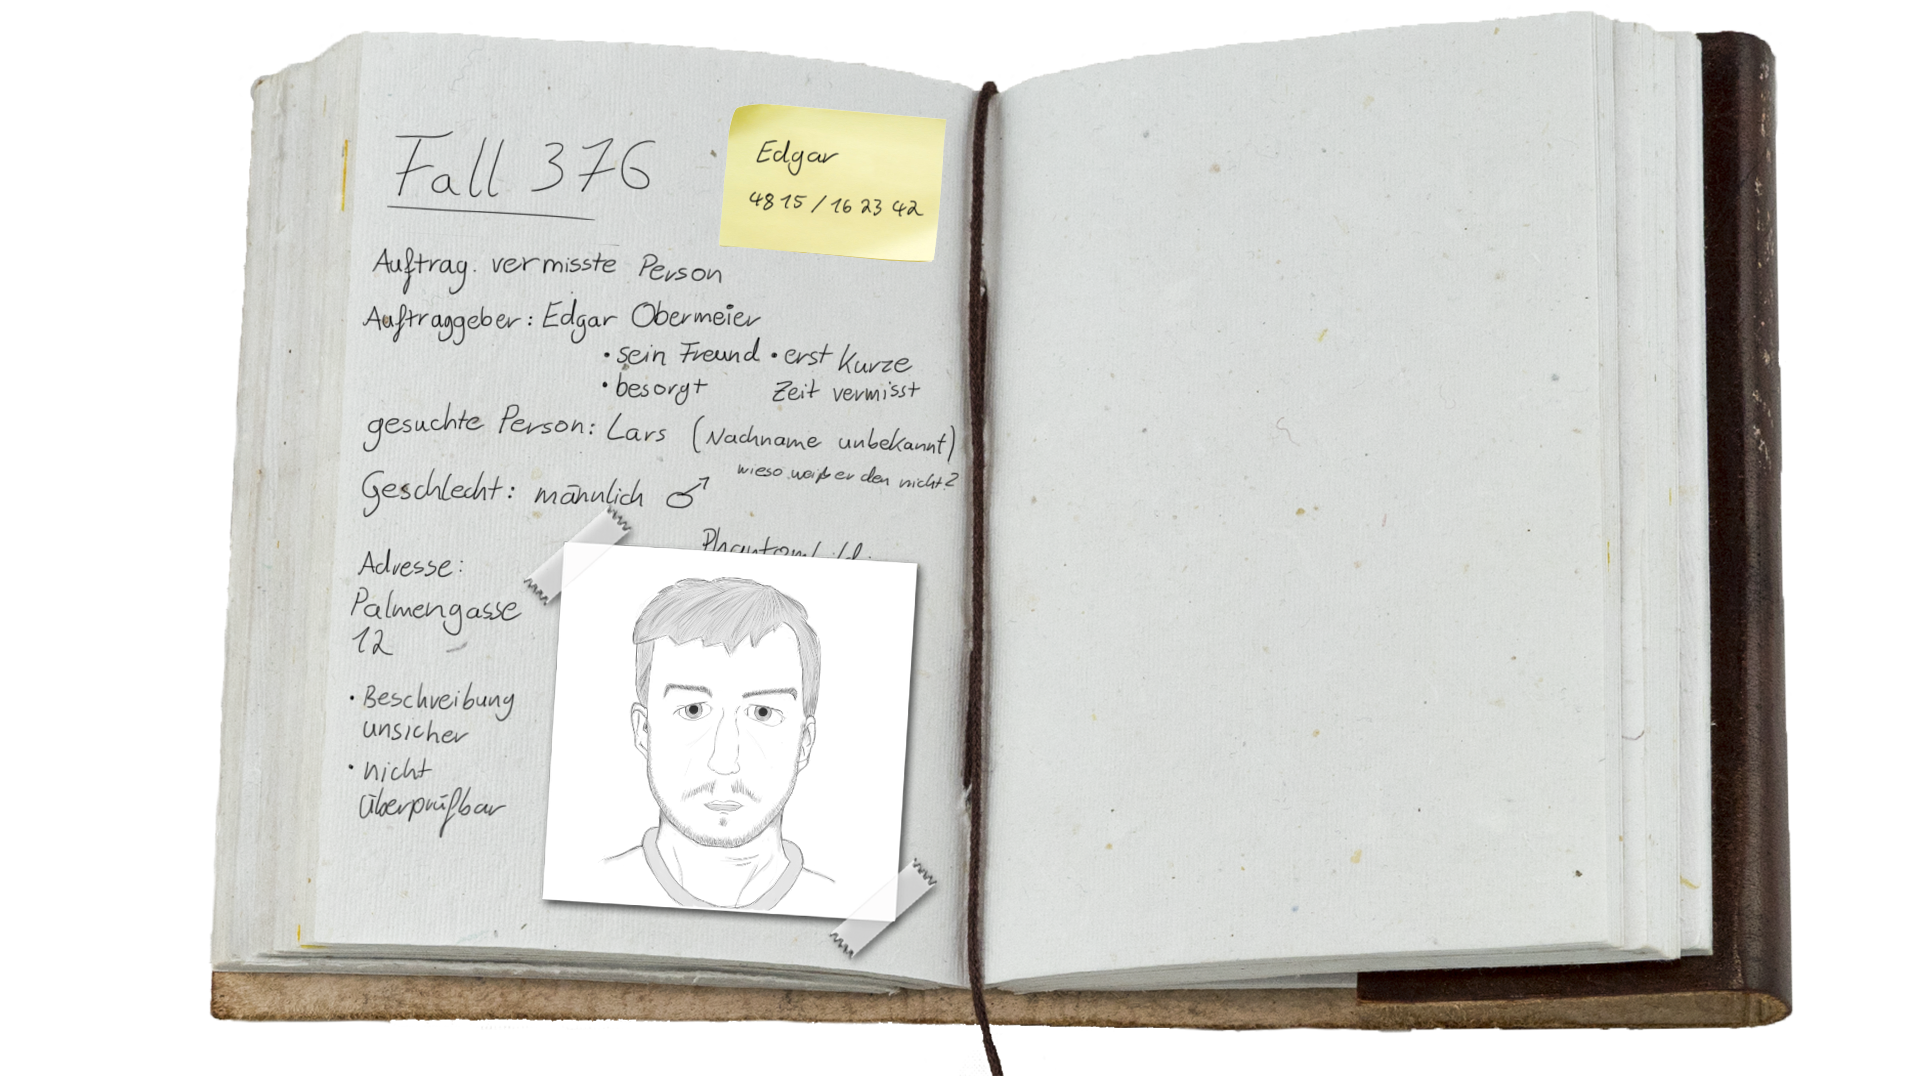 Fall 376
Edgar
4815 / 16 23 42
Auftrag. vermisste Person
Auftraggeber: Edgar Obermeier
• sein Freund • erst kurze
• besorgt Zeit vermisst
gesuchte Person: Lars (Nachname unbekannt)
wieso weiß er den nicht?
Geschlecht: männlich ♂
Phantombild:
Adresse:
Palmengasse
12
• Beschreibung
unsicher
• nicht
überprüfbar